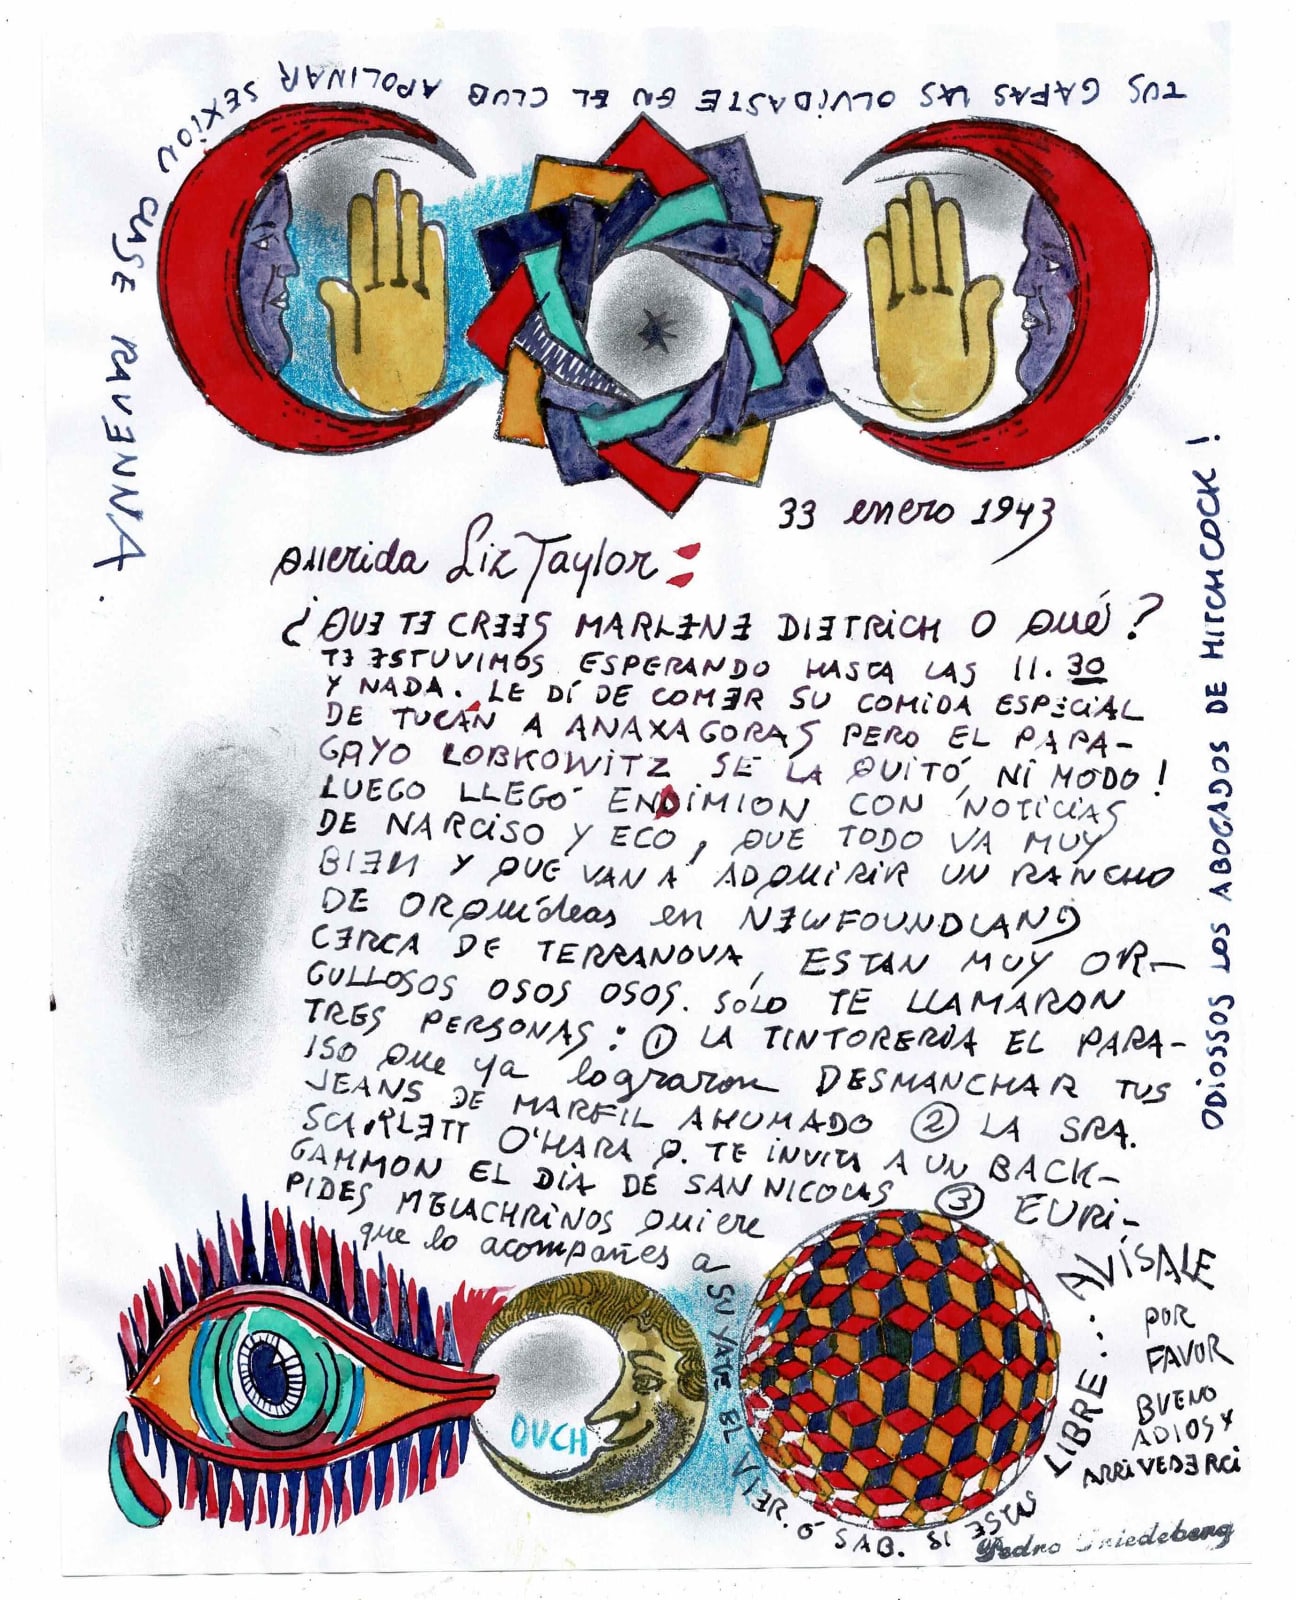 TUS GAFAS LAS OLVIDASTE EN EL CLUB APOLINAR SEXION CLASE RAVENNA.
33 enero 1943
Querida Liz Taylor:
¿QUE TE CREES MARLENE DIETRICH O QUÉ?
TE ESTUVIMOS ESPERANDO HASTA LAS 11.30
Y NADA. LE DÍ DE COMER SU COMIDA ESPECIAL
DE TUCÁN A ANAXAGORAS PERO EL PAPA-
GAYO LOBKOWITZ SE LA QUITÓ, NI MODO!
LUEGO LLEGÓ ENDIMION CON NOTICIAS
DE NARCISO Y ECO, QUE TODO VA MUY
BIEN Y QUE VAN A ADQUIRIR UN RANCHO
DE ORQUÍDEAS en NEWFOUNDLAND
CERCA DE TERRANOVA, ESTAN MUY OR-
GULLOSOS OSOS OSOS. SÓLO TE LLAMARON
TRES PERSONAS: ① LA TINTORERIA EL PARA-
ISO QUE ya lograron DESMANCHAR TUS
JEANS DE MARFIL AHUMADO ② LA SRA.
SCARLETT O'HARA Q. TE INVITA A UN BACK-
GAMMON EL DIA DE SAN NICOLAS ③ EURI-
PIDES MELACHRINOS QUIERE
que lo acompañes a
SU YATE EL VIER. Ó SAB. SI ESTAS LIBRE... AVÍSALE
POR
FAVOR
BUENO
ADIOS Y
ARRIVEDERCI
ODIOSSOS LOS ABOGADOS DE HITCHCOCK!
OUCH
Pedro Friedeberg